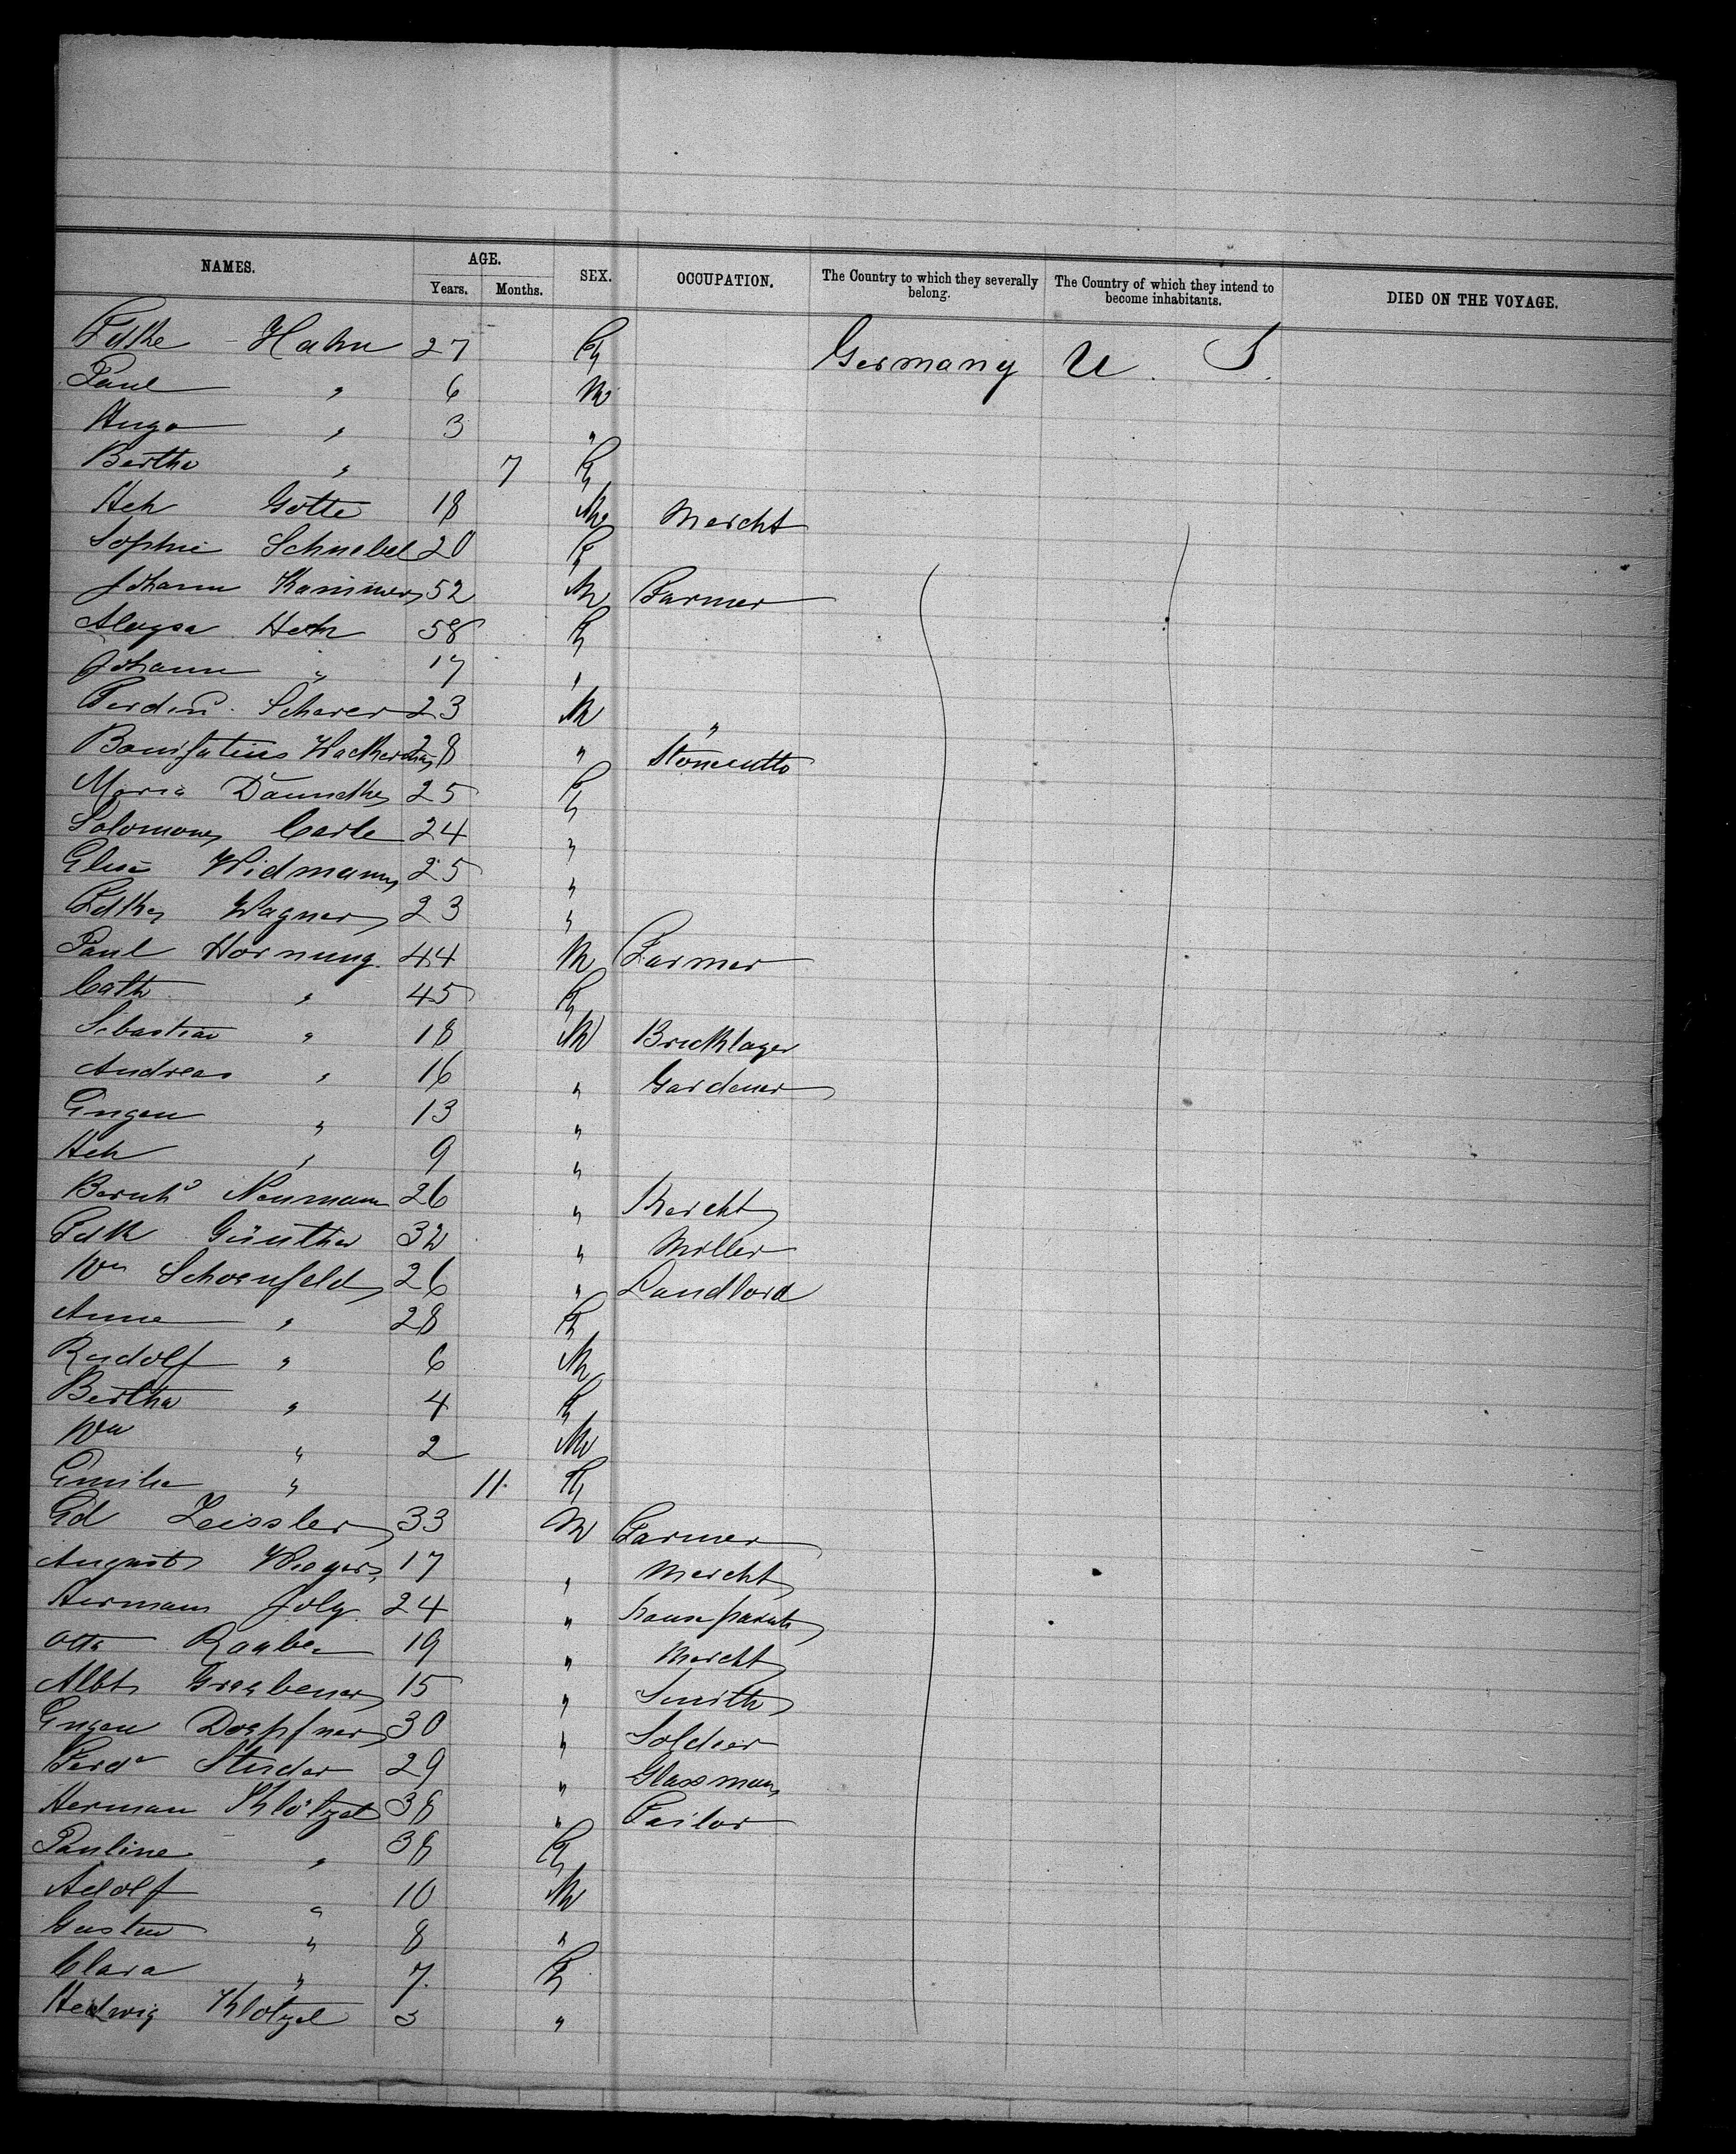 NAMES. AGE. Years. Months. SEX. OCCUPATION. The Country to which they severally belong. The Country of which they intend to become inhabitants. DIED ON THE VOYAGE.
Hahn 27 F Germany U. S.
Paul " 6 M
Hugo " 3 "
Bertha " 7 F
Hch Gotte 18 M Mercht
Sophie Schnebel 20 F
Johann 52 M Farmer
58 F
Johann " 17 "
Ferdin. Scherer 23 M "
Bonifatius 28 " Stonecutter
Maria 25 F
24 "
Elise Widmann 25 "
Wagner 23 "
Paul Hornung 44 M Farmer
Cath " 45 F
Sebastian " 18 M Bricklayer
Andreas " 16 " Gardener
Eugen " 13 "
Hch " 9 "
Bernhd Neumann 26 " Mercht
Fdk Günther 32 " Miller
Wm Schoenfeld 26 " Landlord
Anna " 28 F
Rudolf " 6 M
Bertha " 4 F
Wm " 2 M
Emilie " 11 F
Ed Zeissler 33 M Farmer
August 17 " Mercht
Hermann Joly 24 "
Otto 19 " Mercht
Albt Graebener 15 " Smith
Eugen Doepfner 30 " Soldier
Ferd Studer 29 " Glassman
Herman Klötzel 38 " Tailor
Pauline " 38 F
Adolf " 10 M
Gustav " 8 "
Clara " 7 F
Hedwig Klötzel 3 "